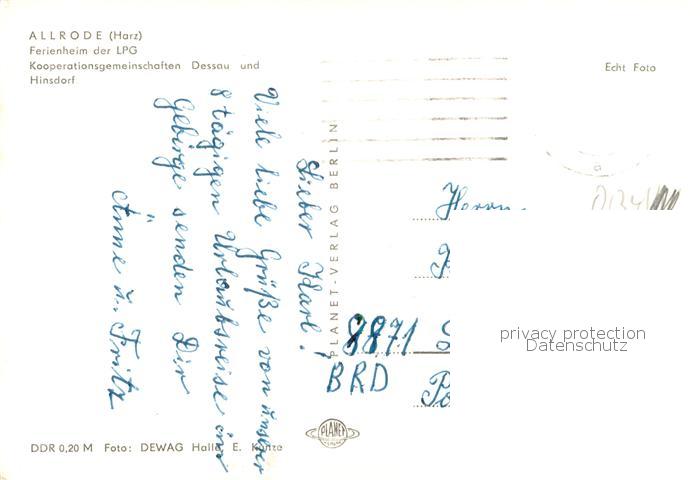 ALLRODE (Harz)
Ferienheim der LPG
Kooperationsgemeinschaften Dessau und
Hinsdorf
Echt Foto
Lieber Karl!
Viele liebe Grüße von unserer
8tägigen Urlaubsreise im
Gebirge senden Dir
Änne u. Fritz
PLANET-VERLAG BERLIN
Herrn
8871
BRD
privacy protection
Datenschutz
PLANET
DDR 0,20 M Foto: DEWAG Halle, E. Kunze